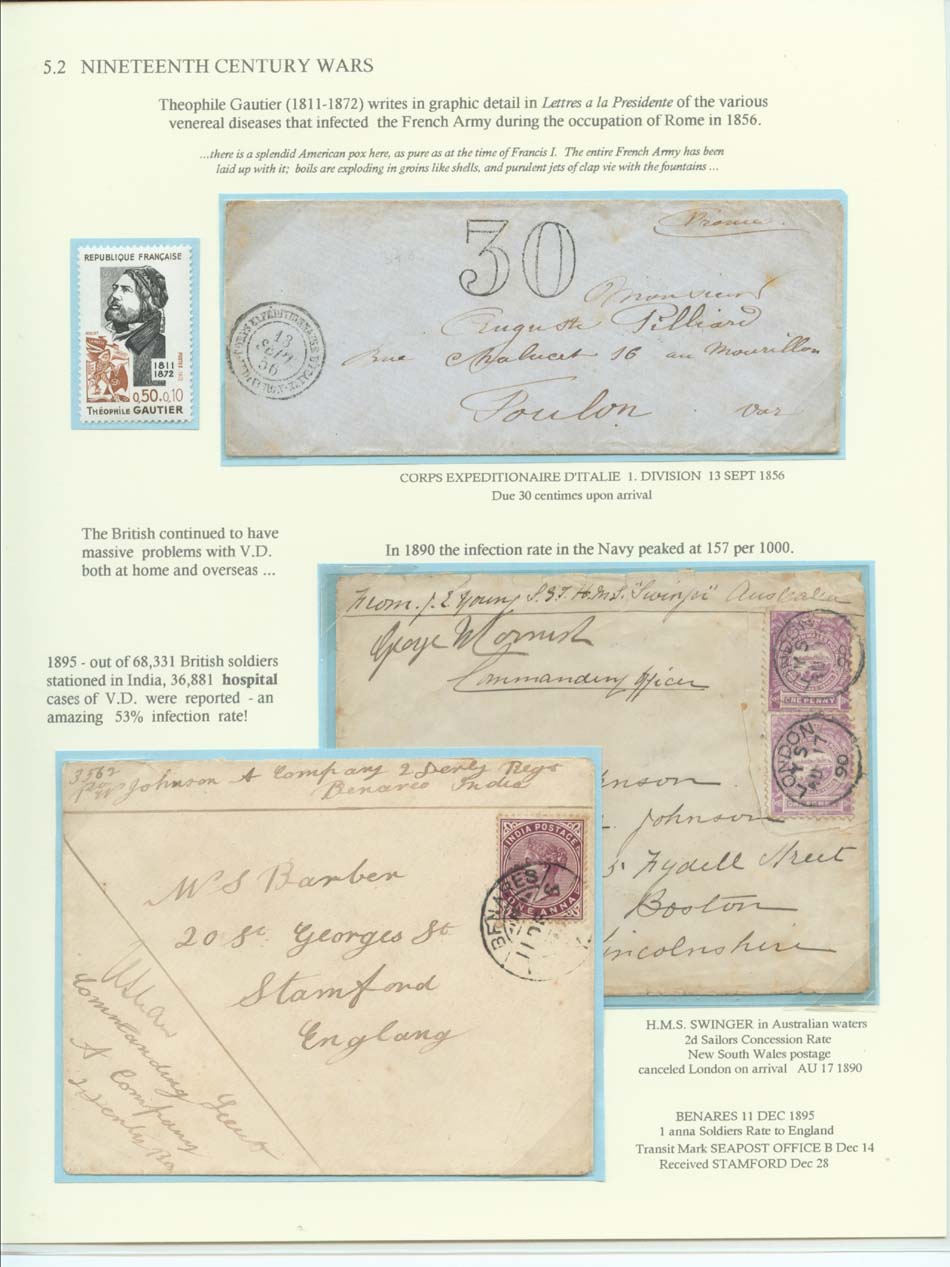 5.2 NINETEENTH CENTURY WARS
Theophile Gautier (1811-1872) writes in graphic detail in Lettres a la Presidente of the various
venereal diseases that infected the French Army during the occupation of Rome in 1856.
...there is a splendid American pox here, as pure as at the time of Francis I. The entire French Army has been
laid up with it; boils are exploding in groins like shells, and purulent jets of clap vie with the fountains ...
REPUBLIQUE FRANÇAISE
1811
1872
0,50+0,10
THÉOPHILE GAUTIER
France
30
Monsieur
Auguste Pilliard
Rue Chalucet 16 au Mourillon
Toulon Var
CORPS EXPEDITIONNAIRE D'ITALIE
13
SEPT
56
CORPS EXPEDITIONAIRE D'ITALIE 1. DIVISION 13 SEPT 1856
Due 30 centimes upon arrival
The British continued to have
massive problems with V.D.
both at home and overseas ...
In 1890 the infection rate in the Navy peaked at 157 per 1000.
1895 - out of 68,331 British soldiers
stationed in India, 36,881 hospital
cases of V.D. were reported - an
amazing 53% infection rate!
From. J. E Young S.S.T. H.M.S. "Swinger" Australia
Commanding Officer
ONE PENNY
LONDON
AU 17
90
ONE PENNY
Johnson
Fydell Street
Boston
Lincolnshire
3562
Johnson A Company 2 Derby Regt
Benares India
INDIA POSTAGE
ONE ANNA
BENARES
11 DE
Mrs Barber
20 St Georges St
Stamford
England
Commanding
A Company
2 Derby
H.M.S. SWINGER in Australian waters
2d Sailors Concession Rate
New South Wales postage
canceled London on arrival AU 17 1890
BENARES 11 DEC 1895
1 anna Soldiers Rate to England
Transit Mark SEAPOST OFFICE B Dec 14
Received STAMFORD Dec 28